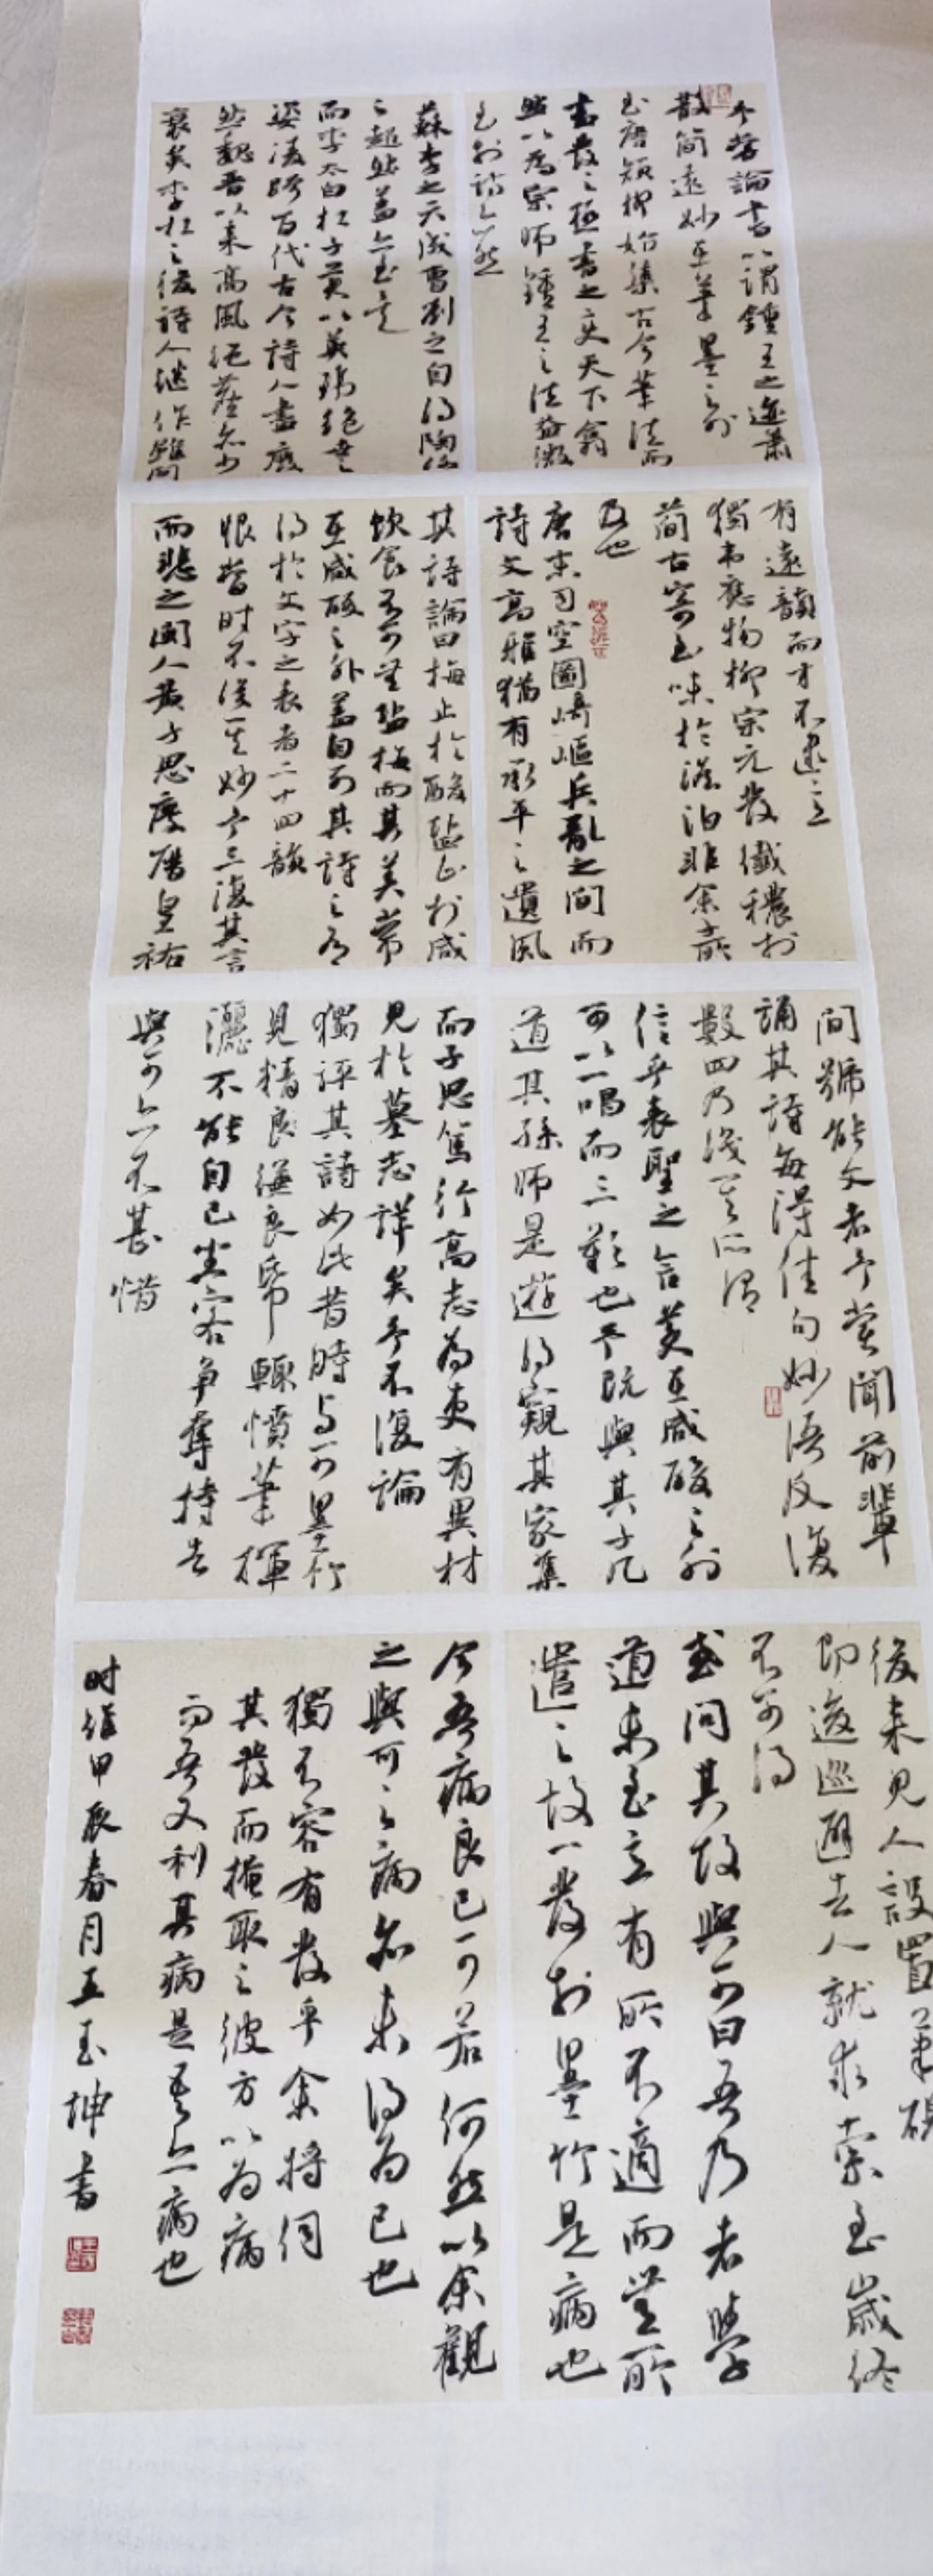 予嘗論書以謂鍾王之迹蕭
散簡遠妙在筆墨之外
至唐顏柳始集古今筆法而
書發之極書之變天下翕
然以為宗師鍾王之法益微
至於詩亦然
蘇李之天成曹劉之自得陶謝
之超然蓋亦至矣
而李太白杜子美以英瑋絕世之
姿凌跨百代古今詩人盡廢
然魏晉以來高風絕塵亦少
衰矣李杜之後詩人繼作雖間
有遠韻而才不逮意
獨韋應物柳宗元發纖穠於
簡古寄至味於澹泊非余子所
及也
唐末司空圖崎嶇兵亂之間而
詩文高雅猶有承平之遺風
其詩論曰梅止於酸鹽止於咸
飲食不可無鹽梅而其美常
在咸酸之外蓋自列其詩之有
得於文字之表者二十四韻
恨當時不識其妙予三復其言
而悲之閩人黃子思慶曆皇祐
間號能文者予嘗聞前輩
誦其詩每得佳句妙語反復
數四乃識其所謂
信乎表聖之言美在咸酸之外
可以一唱而三歎也予既與其子幾
道其孫師是遊得窺其家集
而子思篤行高志為吏有異材
見於墓志詳矣予不復論
獨評其詩如此昔時與可墨竹
見精良縑良紙輒憤筆揮
灑不能自已坐客爭奪持去
與可亦不甚惜
後來見人設置筆硯
即逡巡避去人就求索至歲終
不可得
或問其故與可曰吾乃者學
道未至意有所不適而無所
遣之故一發於墨竹是病也
今吾病良已可若何然以余觀
之與可之病亦未得為已也
獨不容有發乎余將伺
其發而掩取之彼方以為病
而吾又利其病是吾亦病也
时維甲辰春月王玉坤書